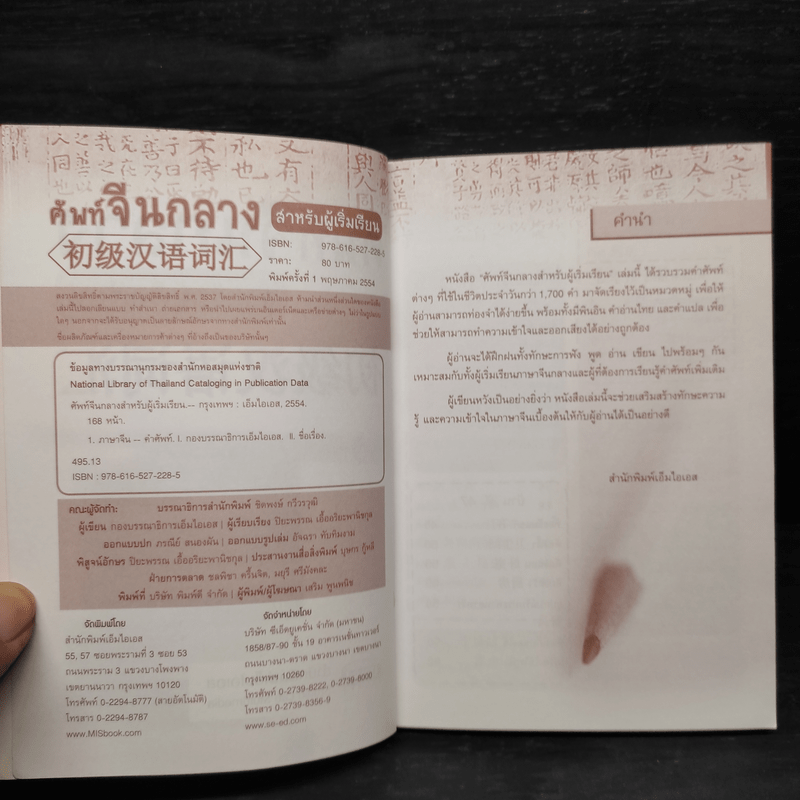 ศัพท์จีนกลาง
สำหรับผู้เริ่มเรียน
初级汉语词汇
ISBN: 978-616-527-228-5
ราคา: 80 บาท
พิมพ์ครั้งที่ 1 พฤษภาคม 2554
สงวนลิขสิทธิ์ตามพระราชบัญญัติลิขสิทธิ์ พ.ศ. 2537 โดยสำนักพิมพ์เอ็มไอเอส ห้ามนำส่วนหนึ่งส่วนใดของหนังสือ
เล่มนี้ไปลอกเลียนแบบ ทำสำเนา ถ่ายเอกสาร หรือนำไปเผยแพร่บนอินเตอร์เน็ตและเครือข่ายต่างๆ ไม่ว่าในรูปแบบ
ใดๆ นอกจากจะได้รับอนุญาตเป็นลายลักษณ์อักษรจากทางสำนักพิมพ์เท่านั้น
ชื่อผลิตภัณฑ์และเครื่องหมายการค้าต่างๆ ที่อ้างถึงเป็นของบริษัทนั้นๆ
ข้อมูลทางบรรณานุกรมของสำนักหอสมุดแห่งชาติ
National Library of Thailand Cataloging in Publication Data
ศัพท์จีนกลางสำหรับผู้เริ่มเรียน.-- กรุงเทพฯ : เอ็มไอเอส, 2554.
168 หน้า.
1. ภาษาจีน -- คำศัพท์. I. กองบรรณาธิการเอ็มไอเอส. II. ชื่อเรื่อง.
495.13
ISBN : 978-616-527-228-5
คณะผู้จัดทำ: บรรณาธิการสำนักพิมพ์ ชิตพงษ์ กวีวรวุฒิ
ผู้เขียน กองบรรณาธิการเอ็มไอเอส | ผู้เรียบเรียง ปิยะพรรณ เอื้ออริยะพานิชกุล
ออกแบบปก ภรณีย์ สนองผัน | ออกแบบรูปเล่ม อัจฉรา ทับทิมงาม
พิสูจน์อักษร ปิยะพรรณ เอื้ออริยะพานิชกุล | ประสานงานสื่อสิ่งพิมพ์ บุษกร กู้หลี
ฝ่ายการตลาด ชลพิชา ครื้นจิต, มยุรี ศรีมังคละ
พิมพ์ที่ บริษัท พิมพ์ดี จำกัด | ผู้พิมพ์/ผู้โฆษณา เสริม พูนพนิช
จัดพิมพ์โดย
สำนักพิมพ์เอ็มไอเอส
55, 57 ซอยพระรามที่ 3 ซอย 53
ถนนพระราม 3 แขวงบางโพงพาง
เขตยานนาวา กรุงเทพฯ 10120
โทรศัพท์ 0-2294-8777 (สายอัตโนมัติ)
โทรสาร 0-2294-8787
www.MISbook.com
จัดจำหน่ายโดย
บริษัท ซีเอ็ดยูเคชั่น จำกัด (มหาชน)
1858/87-90 ชั้น 19 อาคารเนชั่นทาวเวอร์
ถนนบางนา-ตราด แขวงบางนา เขตบางนา
กรุงเทพฯ 10260
โทรศัพท์ 0-2739-8222, 0-2739-8000
โทรสาร 0-2739-8356-9
www.se-ed.com
คำนำ
หนังสือ "ศัพท์จีนกลางสำหรับผู้เริ่มเรียน" เล่มนี้ ได้รวบรวมคำศัพท์
ต่างๆ ที่ใช้ในชีวิตประจำวันกว่า 1,700 คำ มาจัดเรียงไว้เป็นหมวดหมู่ เพื่อให้
ผู้อ่านสามารถท่องจำได้ง่ายขึ้น พร้อมทั้งมีพินอิน คำอ่านไทย และคำแปล เพื่อ
ช่วยให้สามารถทำความเข้าใจและออกเสียงได้อย่างถูกต้อง
ผู้อ่านจะได้ฝึกฝนทั้งทักษะการฟัง พูด อ่าน เขียน ไปพร้อมๆ กัน
เหมาะสมกับทั้งผู้เริ่มเรียนภาษาจีนกลางและผู้ที่ต้องการเรียนรู้คำศัพท์เพิ่มเติม
ผู้เขียนหวังเป็นอย่างยิ่งว่า หนังสือเล่มนี้จะช่วยเสริมสร้างทักษะความ
รู้ และความเข้าใจในภาษาจีนเบื้องต้นให้กับผู้อ่านได้เป็นอย่างดี
สำนักพิมพ์เอ็มไอเอส